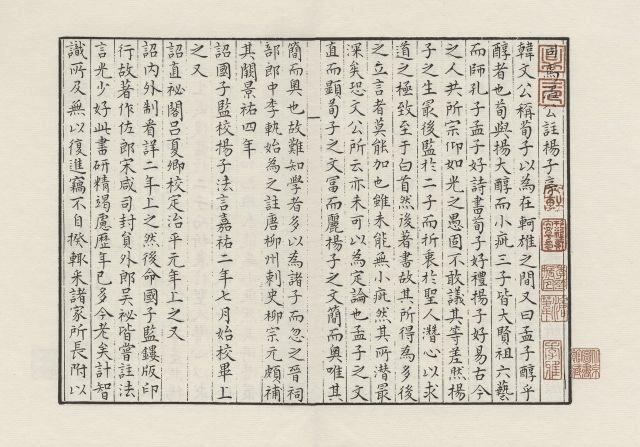 公註揚子序
韓文公稱荀子以為在軻雄之間又曰孟子醇乎
醇者也荀與揚大醇而小疵三子皆大賢祖六藝
而師孔子孟子好詩書荀子好禮揚子好易古今
之人共所宗仰如光之愚固不敢議其等差然揚
子之生最後監於二子而折衷於聖人潛心以求
道之極致至于白首然後著書故其所得為多後
之立言者莫能加也雖未能無小疵然其所潛最
深矣恐文公所云亦未可以為定論也孟子之文
直而顯荀子之文冨而麗揚子之文簡而奧唯其
簡而奧也故難知學者多以為諸子而忽之晉祠
部郎中李軌始為之註唐柳州刺史柳宗元頗補
其闕景祐四年
詔國子監校揚子法言嘉祐二年七月始校畢上
之又
詔直祕閣呂夏卿校定治平元年上之又
詔内外制看詳二年上之然後命國子監鏤版印
行故著作佐郎宋咸司封員外郎吳祕皆嘗註法
言光少好此書研精竭慮歷年已多今老矣計智
識所及無以復進竊不自揆輒采諸家所長附以